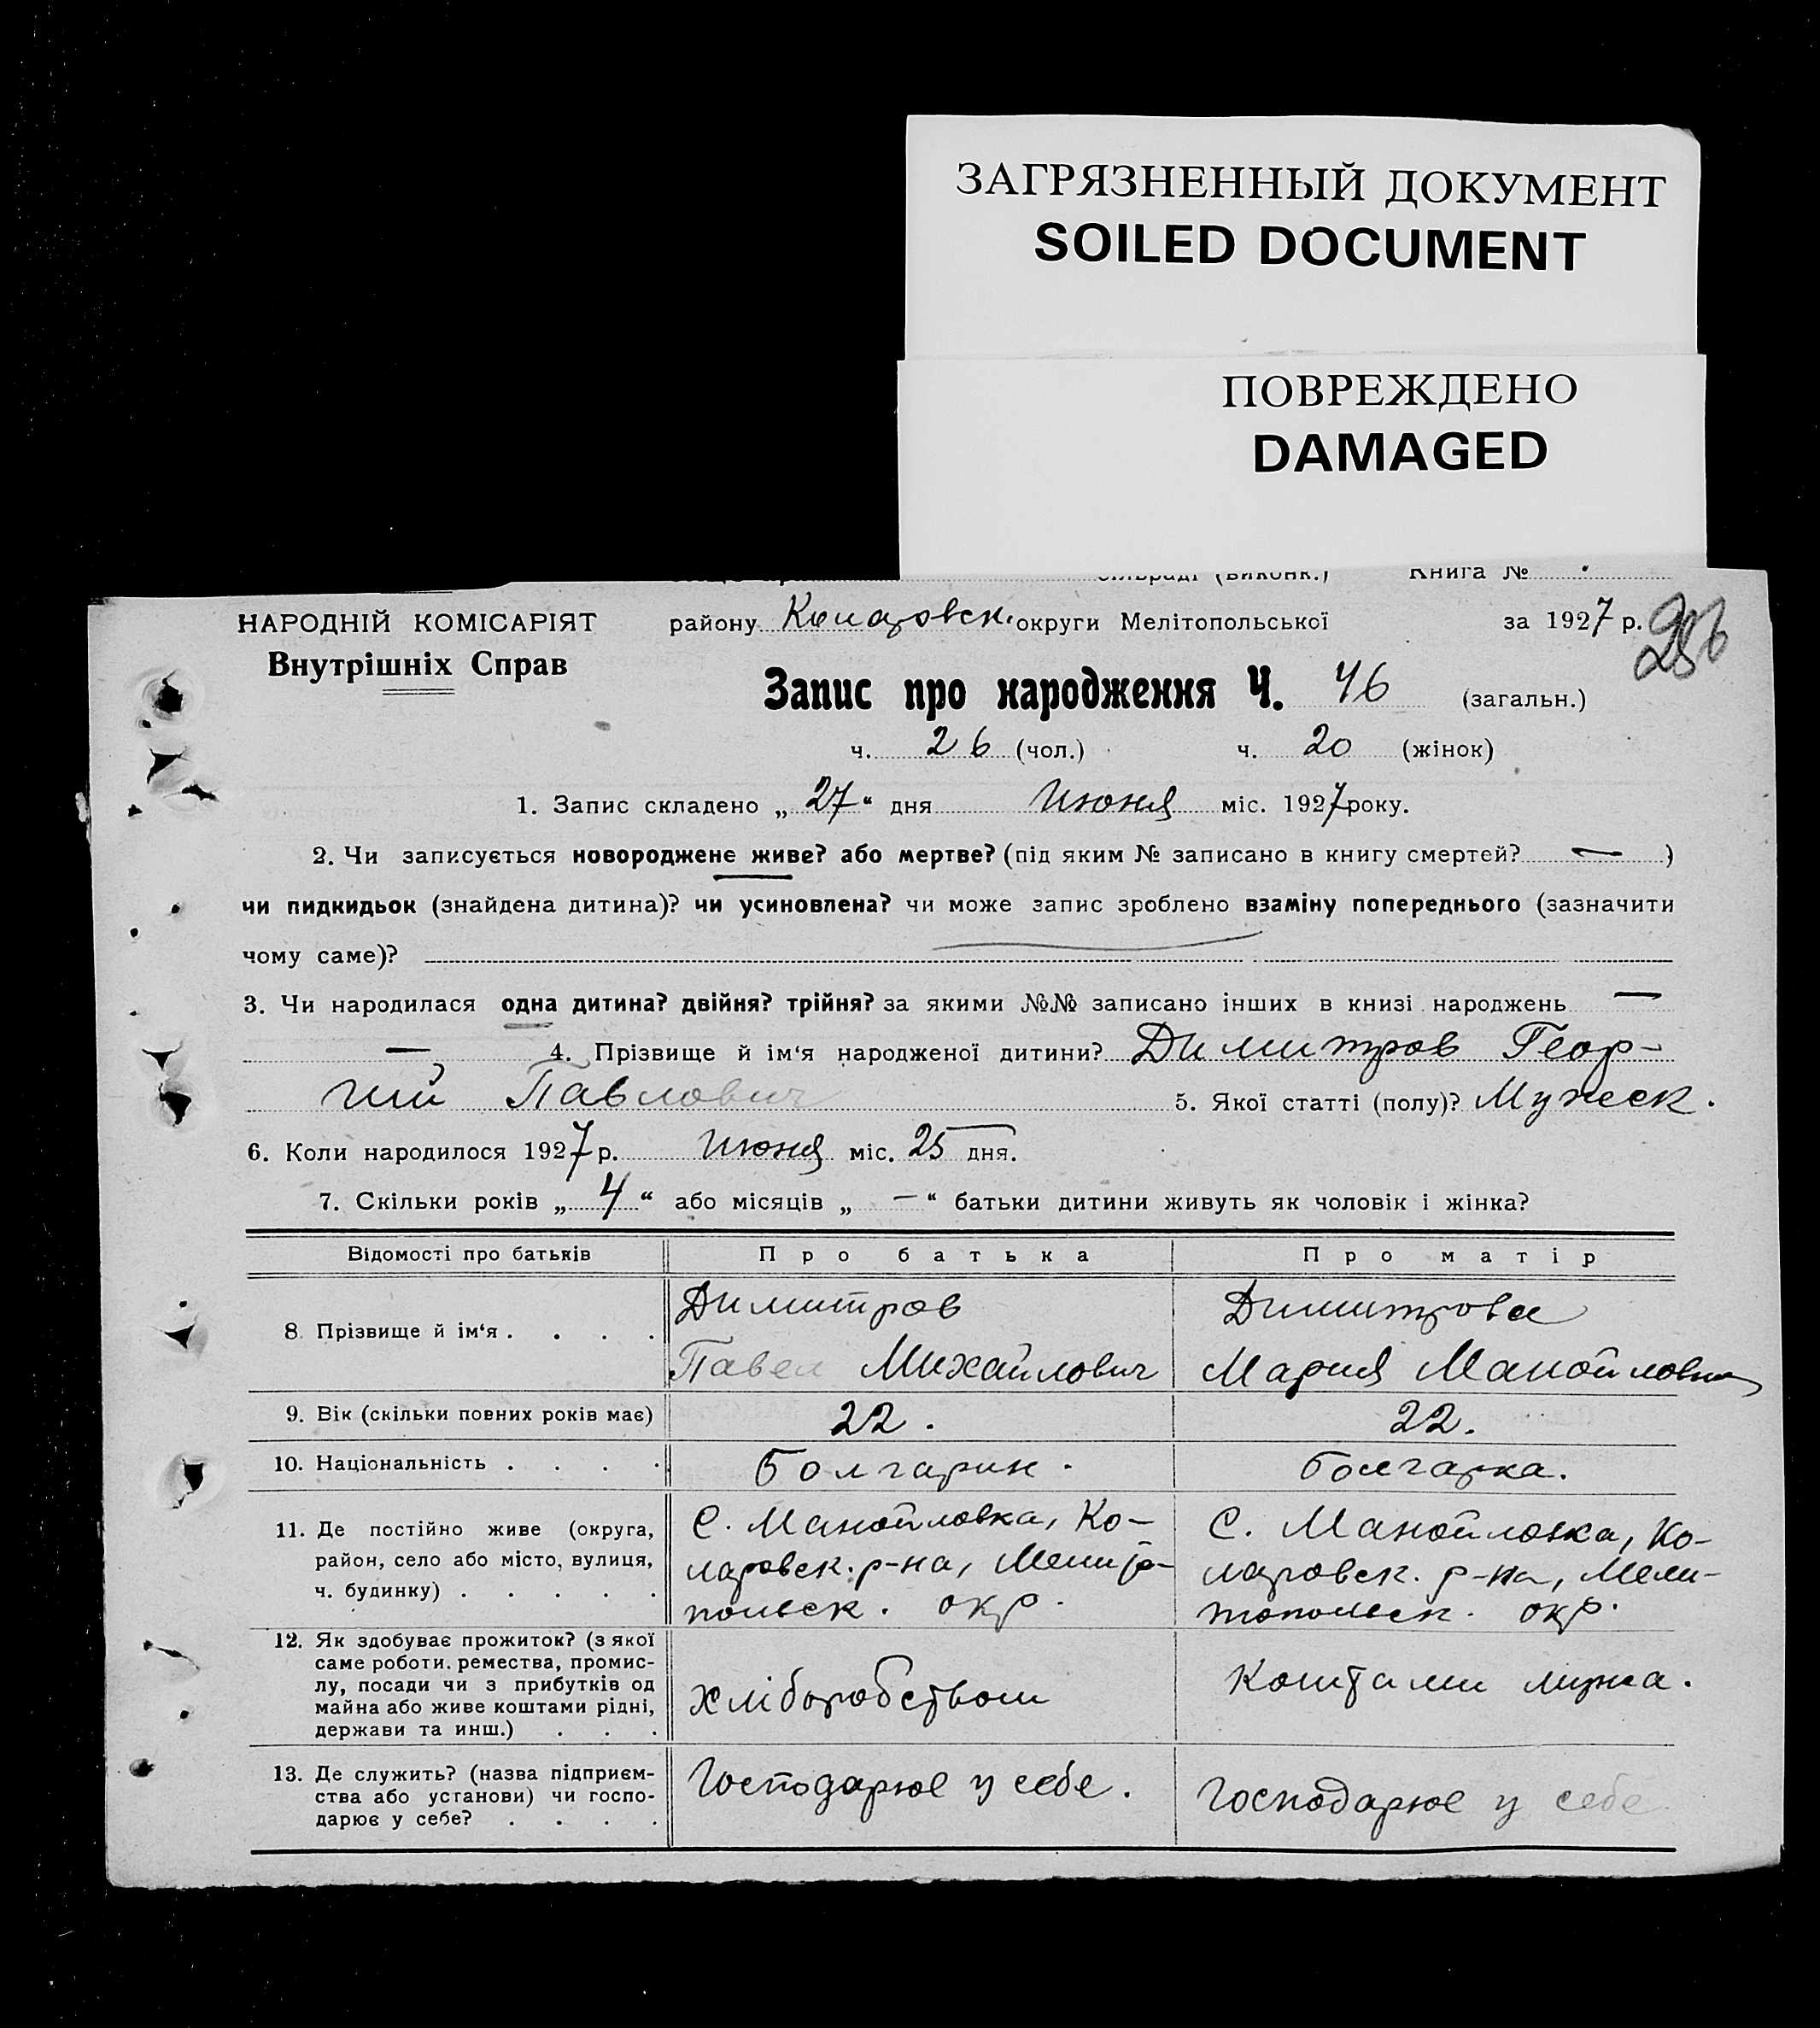 ЗАГРЯЗНЕННЫЙ ДОКУМЕНТ
SOILED DOCUMENT
ПОВРЕЖДЕНО
DAMAGED
сільраді (виконк.) Книга №
НАРОДНІЙ КОМІСАРІЯТ
Внутрішніх Справ
району Коларовск. округи Мелітопольської за 1927 р.
Запис про народження Ч. 46 (загальн.)
ч. 26 (чол.) ч. 20 (жінок)
1. Запис складено „27“ дня Июня міс. 1927 року.
2. Чи записується новороджене живе? або мертве? (під яким № записано в книгу смертей? — )
чи пидкидьок (знайдена дитина)? чи усиновлена? чи може запис зроблено взаміну попереднього (зазначити
чому саме)?
3. Чи народилася одна дитина? двійня? трійня? за якими №№ записано інших в книзі народжень —
— 4. Прізвище й ім‘я народженої дитини? Димитров Геор-
гий Павлович 5. Якої статті (полу)? Мужеск.
6. Коли народилося 1927 р. Июня міс. 25 дня.
7. Скільки років „4“ або місяців „—“ батьки дитини живуть як чоловік і жінка?
Відомості про батьків Про батька Про матір
8. Прізвище й ім‘я . . . .
Димитров
Павел Михайлович
Димитрова
Мария Манойловна
9. Вік (скільки повних років має) 22. 22.
10. Національність . . . . Болгарин. болгарка.
11. Де постійно живе (округа,
район, село або місто, вулиця,
ч. будинку) . . . . .
С. Манойловка, Ко-
ларовск. р-на, Мелито-
польск. окр.
С. Манойловка, Ко-
ларовск. р-на, Мели-
топольск. окр.
12. Як здобуває прожиток? (з якої
саме роботи, ремества, промис-
лу, посади чи з прибутків од
майна або живе коштами рідні,
держави та инш.) . . .
хліборобством
Коштами мужа.
13. Де служить? (назва підприєм-
ства або установи) чи госпо-
дарює у себе? . . . .
Господарює у себе.
Господарює у себе